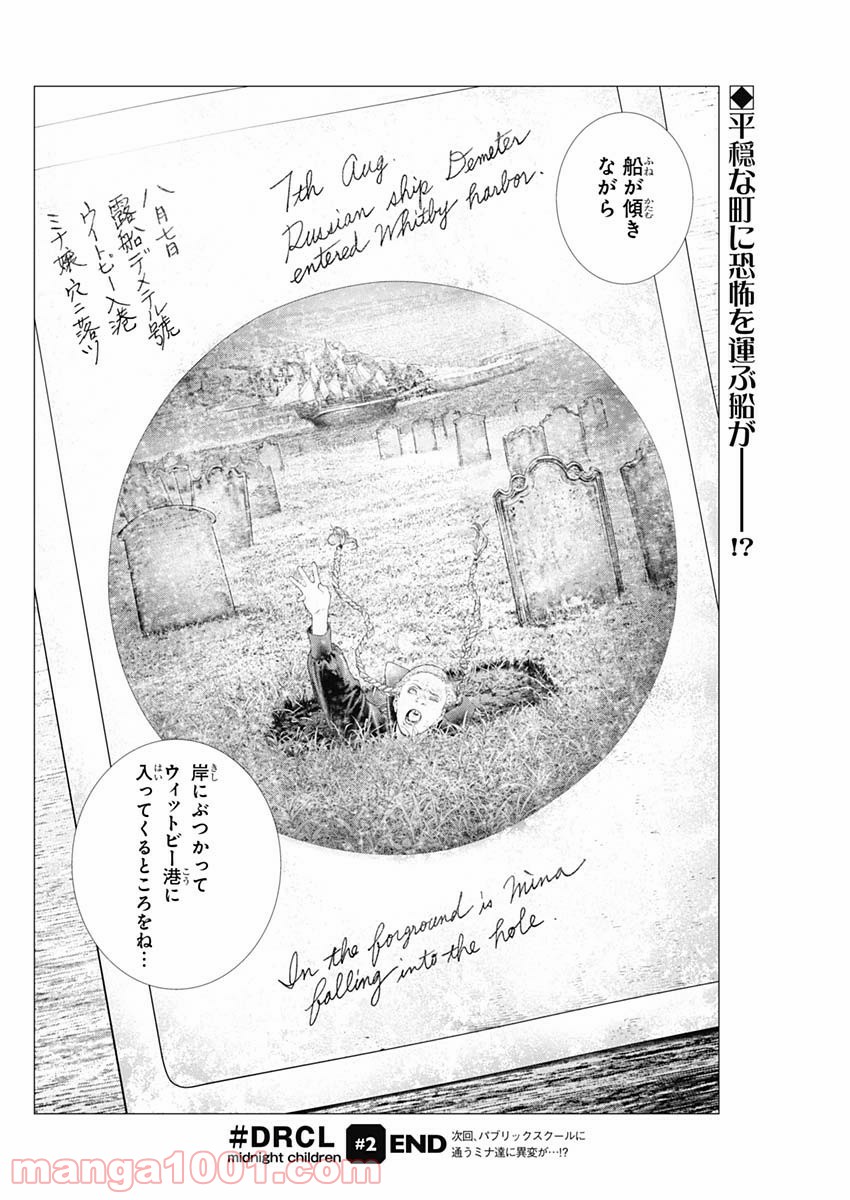 ◆平穏な町に恐怖を運ぶ船が――!?
船が傾き
ながら
7th Aug.
Russian ship Demeter
entered Whitby harbor.
八月七日
露船デメテル號
ウイトビー入港
ミナ嬢穴ニ落ツ
岸にぶつかって
ウィットビー港に
入ってくるところをね…
In the forground is Mina
falling into the hole.
#DRCL
midnight children
#2
END
次回、パブリックスクールに
通うミナ達に異変が…!?
manga1001.com